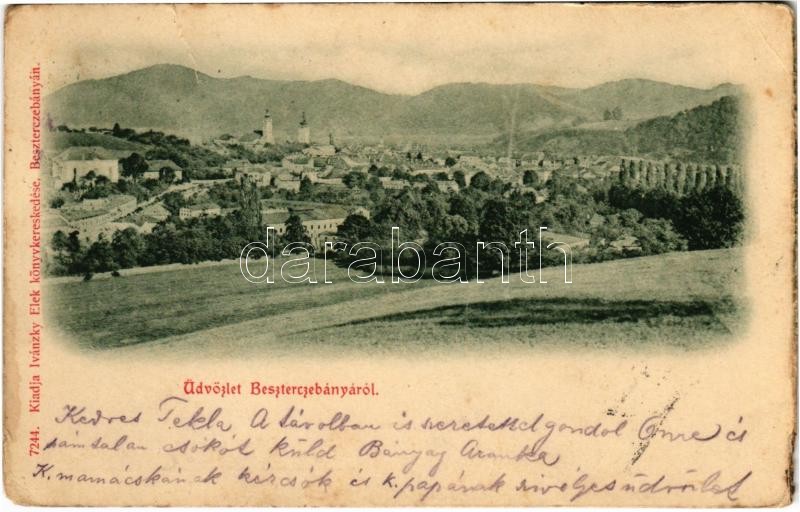 7244. Kiadja Ivánzky Elek könyvkereskedése, Beszterczebányán.
darabanth
Üdvözlet Beszterczebányáról.
Kedves Tekla A távolban is szeretettel gondol Önre és
számtalan csókót küld Bányay Aranka
K. mamácskának kézcsók és k. papának szivélyes üdvözlet